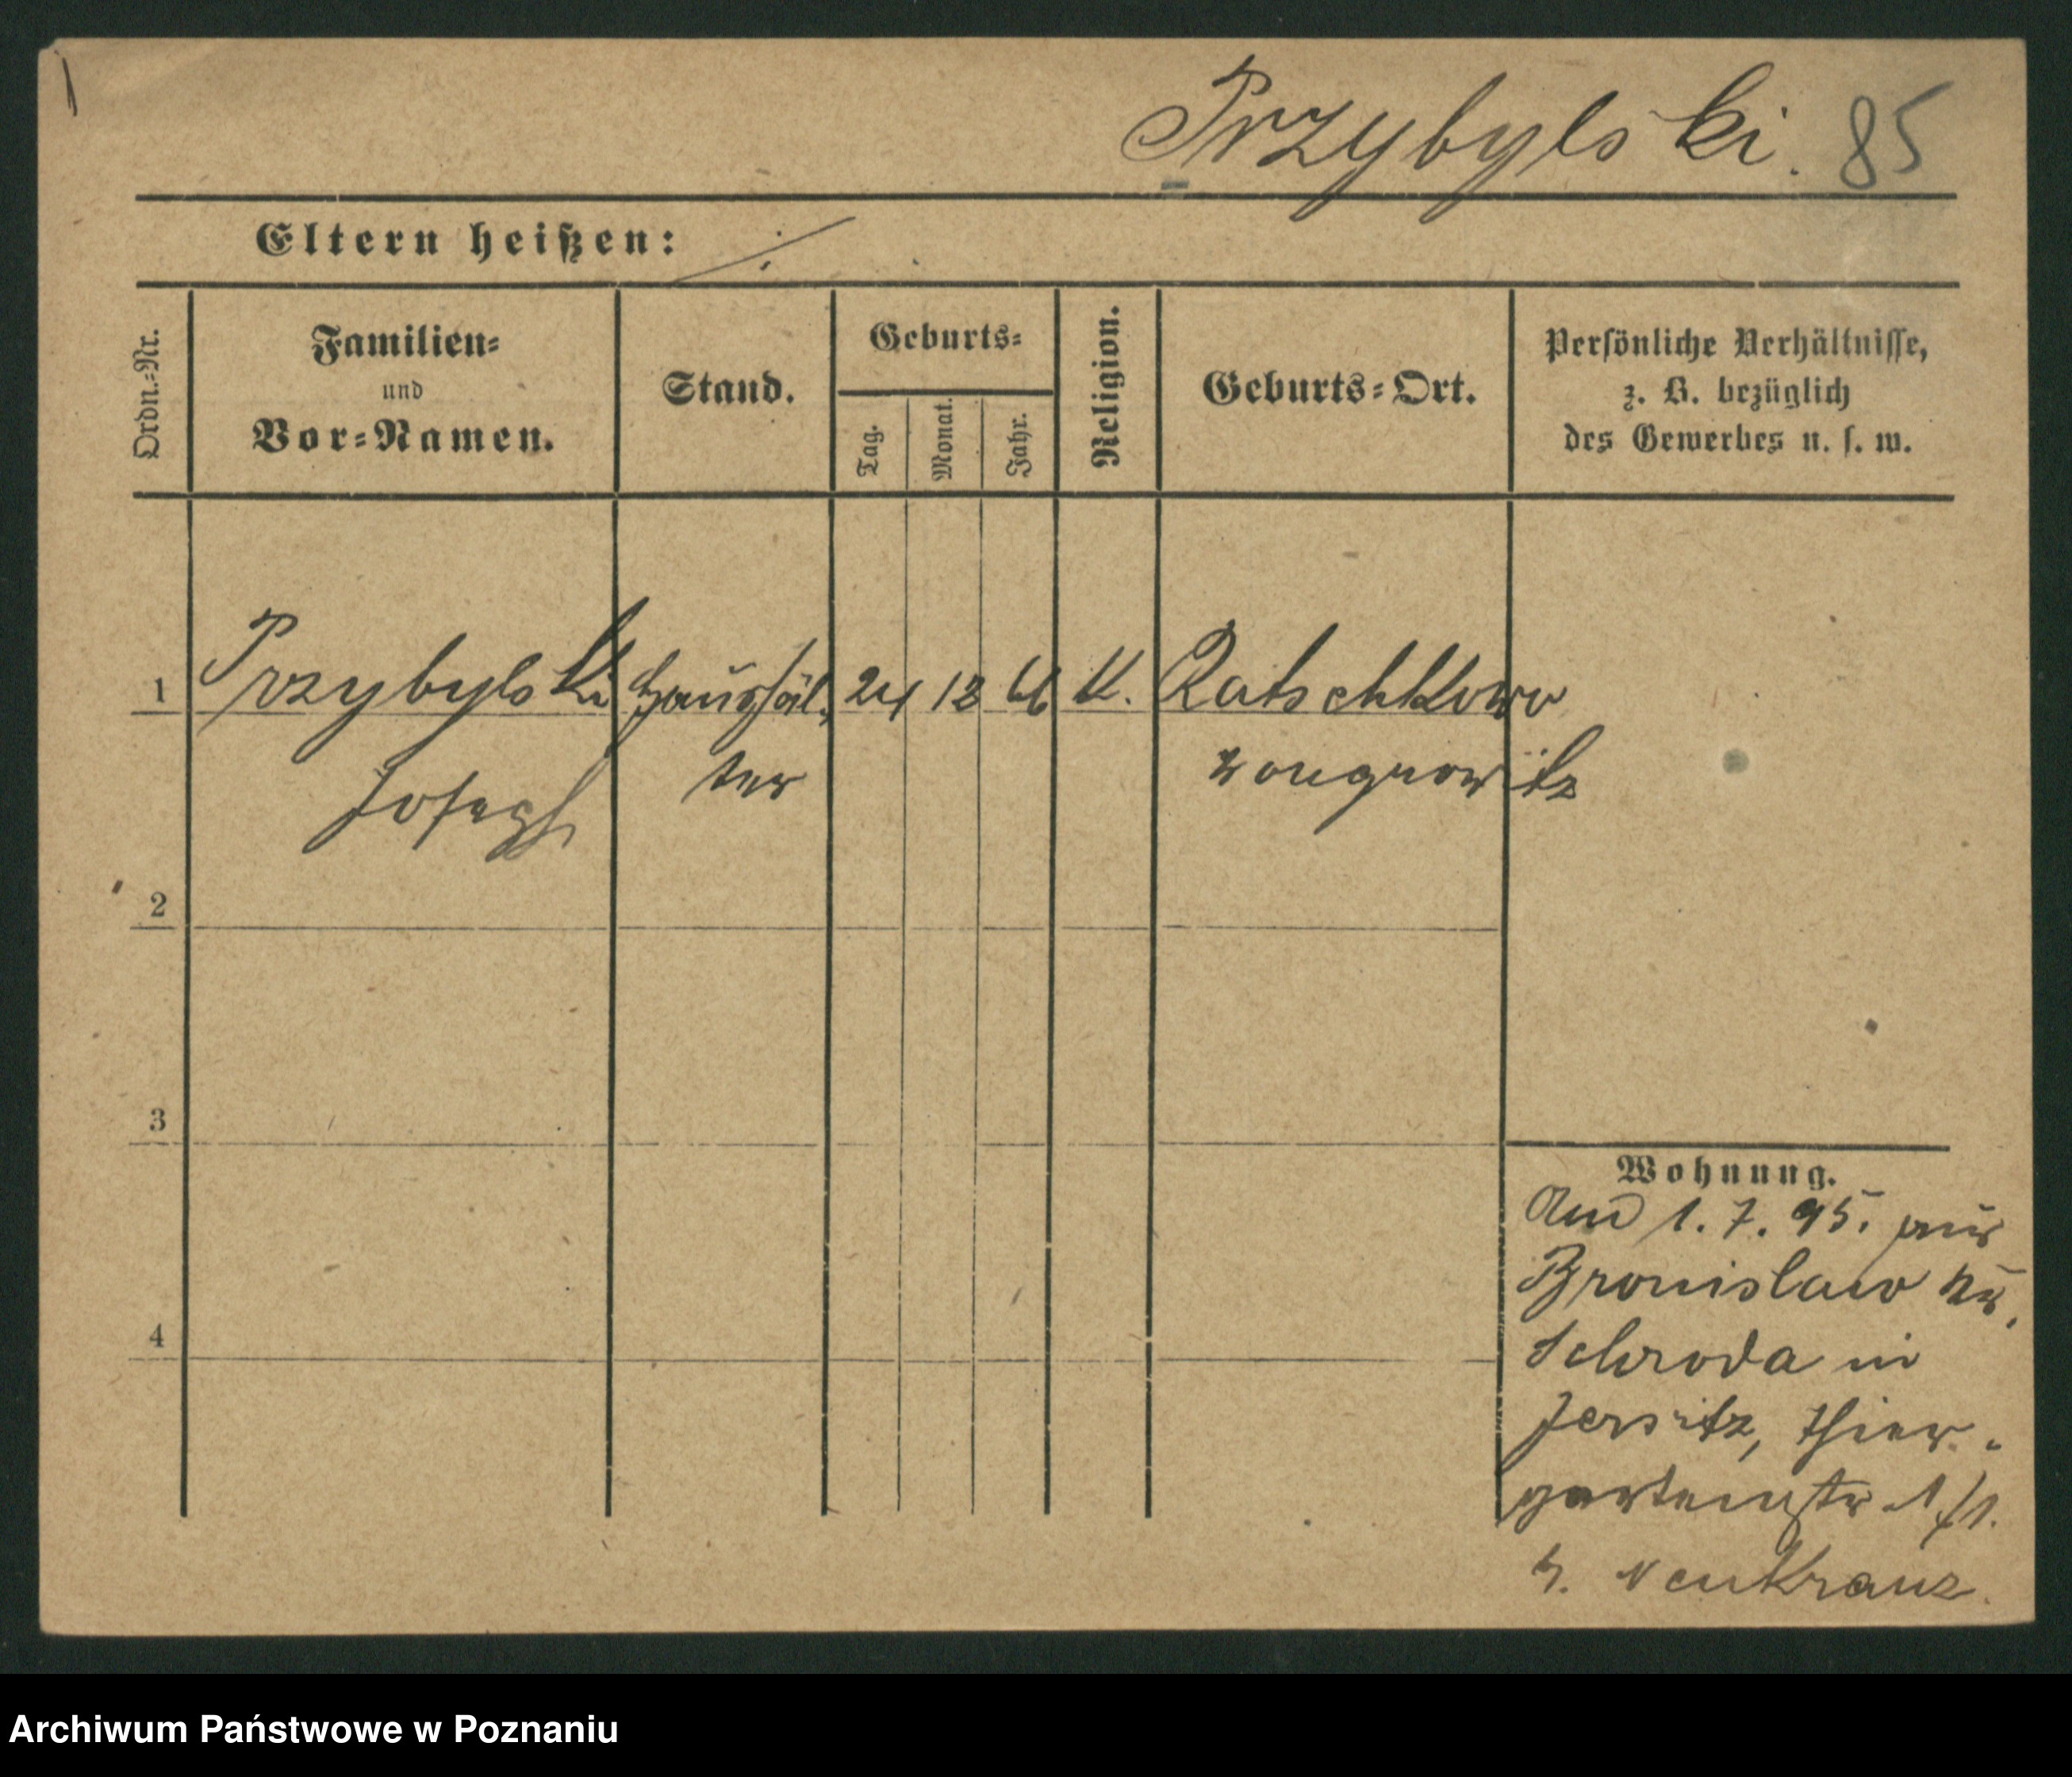 Przybylski. 85
Eltern heißen: ./.
Ordn.-Nr.
Familien-
und
Vor-Namen.
Stand.
Geburts-
Tag.
Monat.
Jahr.
Religion.
Geburts-Ort.
Persönliche Verhältnisse,
z. B. bezüglich
des Gewerbes u. s. w.
1 Przybylski Haushäl- 24 12 66 K. Ratschkowo
Joseph ter Wongrowitz
2
3
4
Wohnung.
Am 1. 7. 95. aus
Bronislaw Kr.
Schroda in
Jersitz, Thier-
gartenstr 1/1.
b. Neukranz
Archiwum Państwowe w Poznaniu